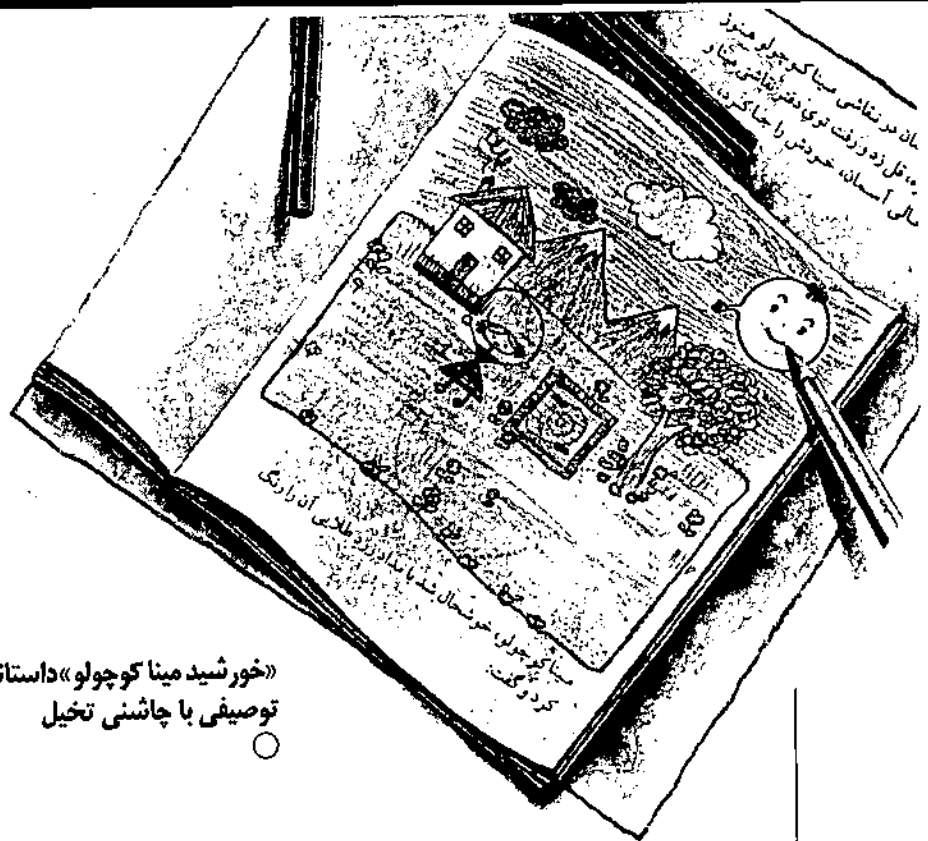 ـان در نقاشی مینا کوچولو هنوز
ـه، قل زد و رفت توی دفتر نقاشی مینا و
ـالی آسمان، خودش را جا کرد.
مینا کوچولو، خوشحال شد با مداد زرد طلایی آن را رنگ
کرد و گفت:
«خورشید مینا کوچولو» داستانی
توصیفی با چاشنی تخیل